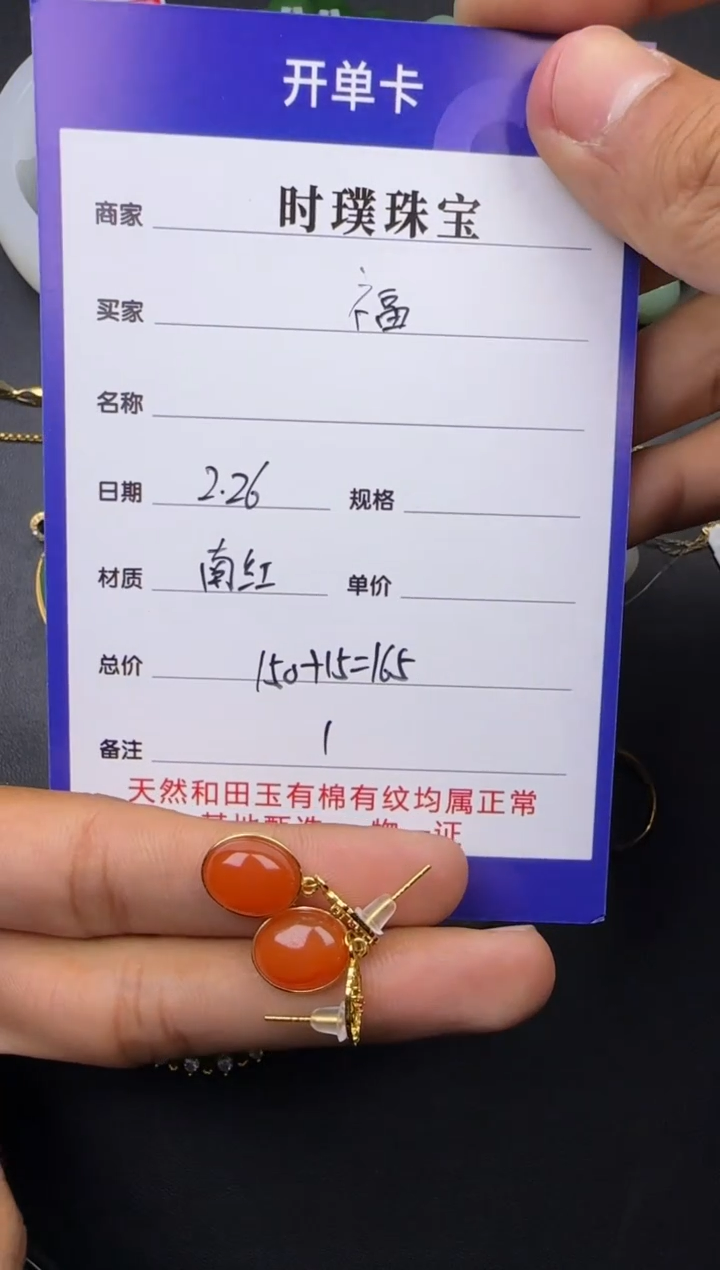 开单卡
商家 时璞珠宝
买家 福
名称
日期 2.26 规格
材质 南红 单价
总价 150+15=165
备注 1
天然和田玉有棉有纹均属正常
证